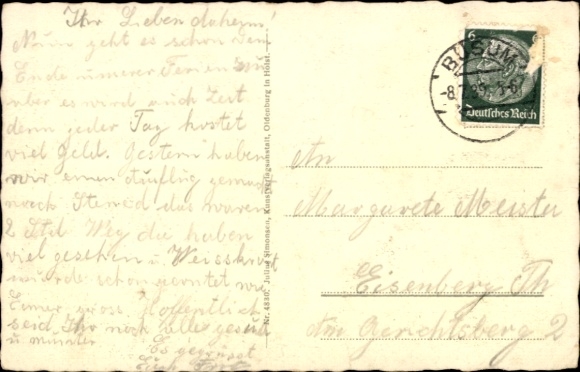 Ihr Lieben daheim!
Nun geht es schon dem
Ende unserer Ferien zu
aber es wird auch Zeit
denn jeder Tag kostet
viel Geld. Gestern haben
wir einen Ausflug gemacht
noch das waren
2 Std Weg da haben
viel gesehen u. Weisskraut
wurde schon geerntet wie
Eimer gross. Hoffentlich
seid Ihr noch alle gesund
u munter
Es gegrüsst
Euch
Nr. Julius Simonsen, Kunstverlagsanstalt, Oldenburg in Holst.
6
BÜSUM
Deutsches Reich
An
Margarete Meister
Eisenberg Th
Am Gerichtsberg 2